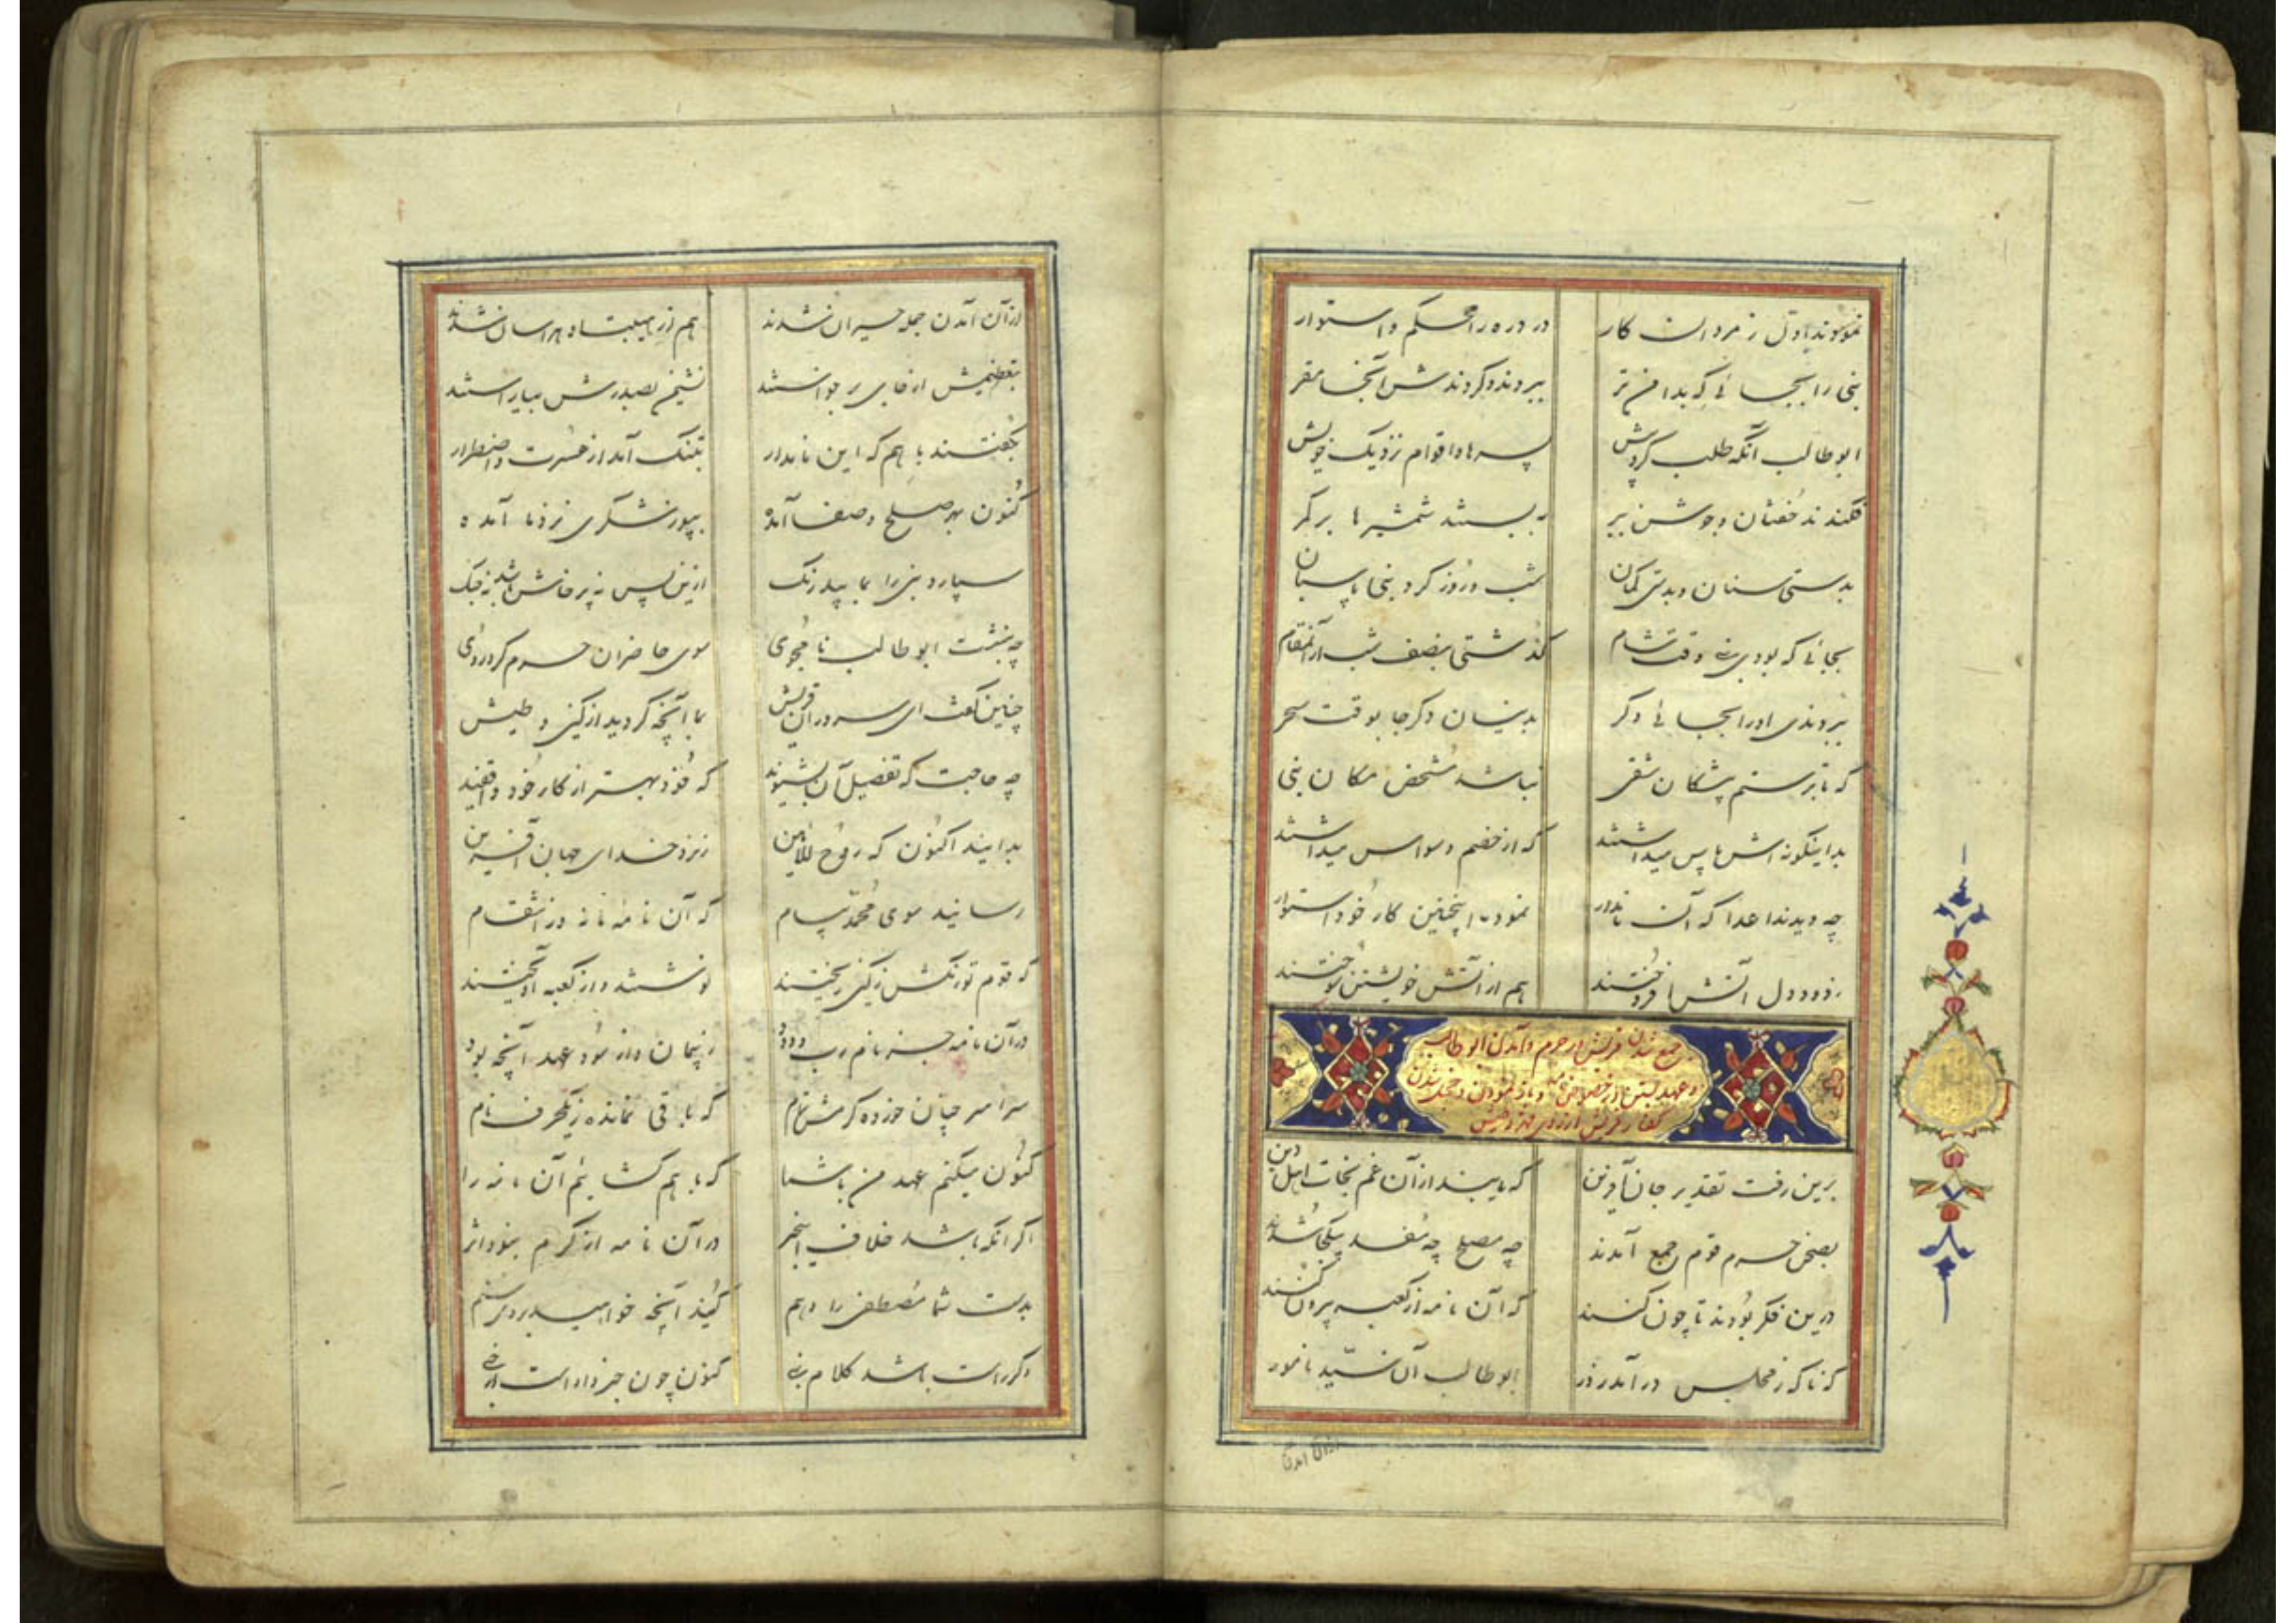 نمودند اول ز مردان کار در دره را محکم و استوار
نبی را بجائی که بد امن تر ببردند و کردندش آنجا مقر
ابوطالب آنگه طلب کرد پیش پسرها و اقوام نزدیک خویش
فکندند خفتان و جوشن ببر ببستند شمشیرها بر کمر
بدستی سنان و بدستی کمان شب و روز گرد نبی پاسبان
بجائی که بودی نبی وقت شام گذشتی بنصف شب از آنمقام
ببردندی او را بجائی دگر بدینسان دگر جا بوقت سحر
که تا بر ستم پیشگان شقی نباشد مشخص مکان نبی
بداینگونه اش پاس میداشتند که از خصم وسواس میداشتند
چه دیدند اعدا که آن نامدار نمود اینچنین کار خود استوار
ز دود دل آتش افروختند هم از آتش خویشتن سوختند
جمع شدن قریش در حرم و آمدن ابوطالب
و عهد بستن و نمودن و خجل شدن
کفار قریش از روی
برین رفت تقدیر جان آفرین که یابند از آن غم نجات اهل دین
بصحن حرم قوم جمع آمدند چه مصلح چه مفسد بیکجا شدند
درین فکر بودند تا چون کنند که آن نامه از کعبه بیرون کنند
که ناگه ز مجلس در آمد ز در ابوطالب آن سید نامور
از آن آمدن
از آن آمدن جمله حیران شدند هم از هیبت او هراسان شدند
بتعظیمش از جای برخواستند نشیمن بصدرش بیاراستند
بگفتند با هم که این نامدار بتنگ آمد از عسرت و اضطرار
کنون بهر صلح و صفا آمده بپوزشگری نزد ما آمده
سپارد نبی را بما بیدرنگ از این پس نه پرخاش باشد نه جنگ
چه بنشست ابوطالب نامجوی سوی حاضران حرم کرد روی
چنین گفت ای سروران قریش بما آنچه کردید از کین و طیش
چه حاجت که تفصیل آن بشنوید که خود بهتر از کار خود واقفید
بدانید اکنون که روح الامین ز نزد خدای جهان آفرین
رسانید سوی محمد پیام که آن نامه نه در انتقام
که قوم تو رنگش ز کین ریختند نوشتند و از کعبه آویختند
در آن نامه جز نام رب ودود ز پیمان و از سود عهد آنچه بود
سراسر چنان خورده کرمش تمام که باقی نمانده ز یکحرف نام
کنون میکنم عهد من با شما که با هم گشائیم آن نامه را
اگر آنکه باشد خلاف اینخبر در آن نامه از کرم نبود اثر
بدست شما مصطفی را دهم کنید آنچه خواهید بر وی ستم
وگر راست باشد کلام نبی کنون چون خبر داده است